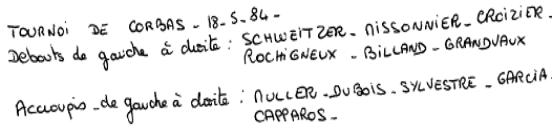 TOURNOI DE CORBAS - 18-5-84-
Debouts de gauche à droite : SCHWEITZER - NISSONNIER - CROIZIER -
ROCHIGNEUX - BILLAND - GRANDVAUX
Accroupis - de gauche à droite : MULLER - DUBOIS - SYLVESTRE - GARCIA -
CAPPAROS -